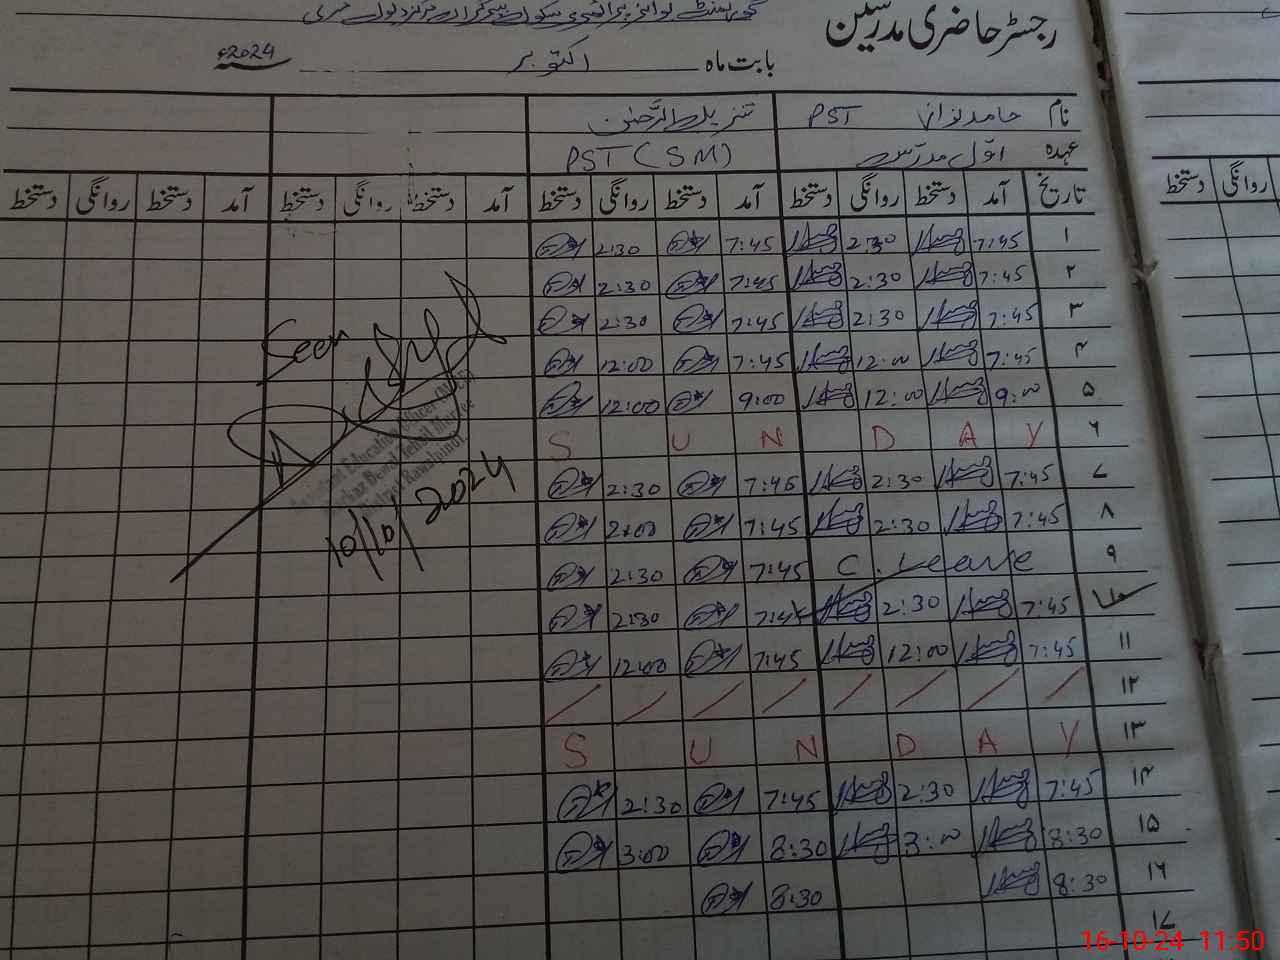 رجسٹر حاضری مدرسین
گورنمنٹ بوائز پرائمری سکول
بابت ماہ اکتوبر 2024ء
نام PST تنزیل الرحمٰن
عہدہ اوّل مدرّس PST (SM)
تاریخ آمد دستخط روانگی دستخط آمد دستخط روانگی دستخط آمد دستخط روانگی دستخط آمد دستخط روانگی دستخط
روانگی دستخط
۱ 7:45 2:30 7:45 2:30
۲ 7:45 2:30 7:45 2:30
۳ 7:45 2:30 7:45 2:30
۴ 7:45 12:00 7:45 12:00
۵ 9:00 12:00 9:00 12:00
۶ S U N D A Y
۷ 7:45 2:30 7:45 2:30
۸ 7:45 2:30 7:45 2:00
۹ C. Leave 7:45 2:30
۱۰ 7:45 2:30 7:45 2:30
۱۱ 7:45 12:00 7:45 12:00
۱۲
۱۳ S U N D A Y
۱۴ 7:45 2:30 7:45 2:30
۱۵ 8:30 3:00 8:30 3:00
۱۶ 8:30 8:30
۱۷
Seen
Assistant Education Officer
Rawalpindi
10/10/2024
16-10-24 11:50